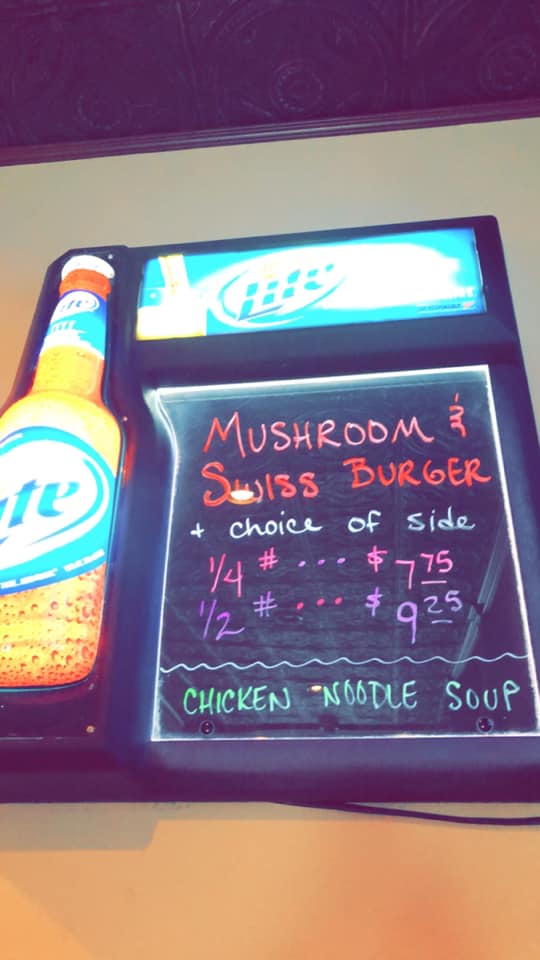 Lite
Lite
MUSHROOM &
SWISS BURGER
+ choice of side
1/4 # ... $ 7 75
1/2 # ... $ 9 25
CHICKEN NOODLE SOUP